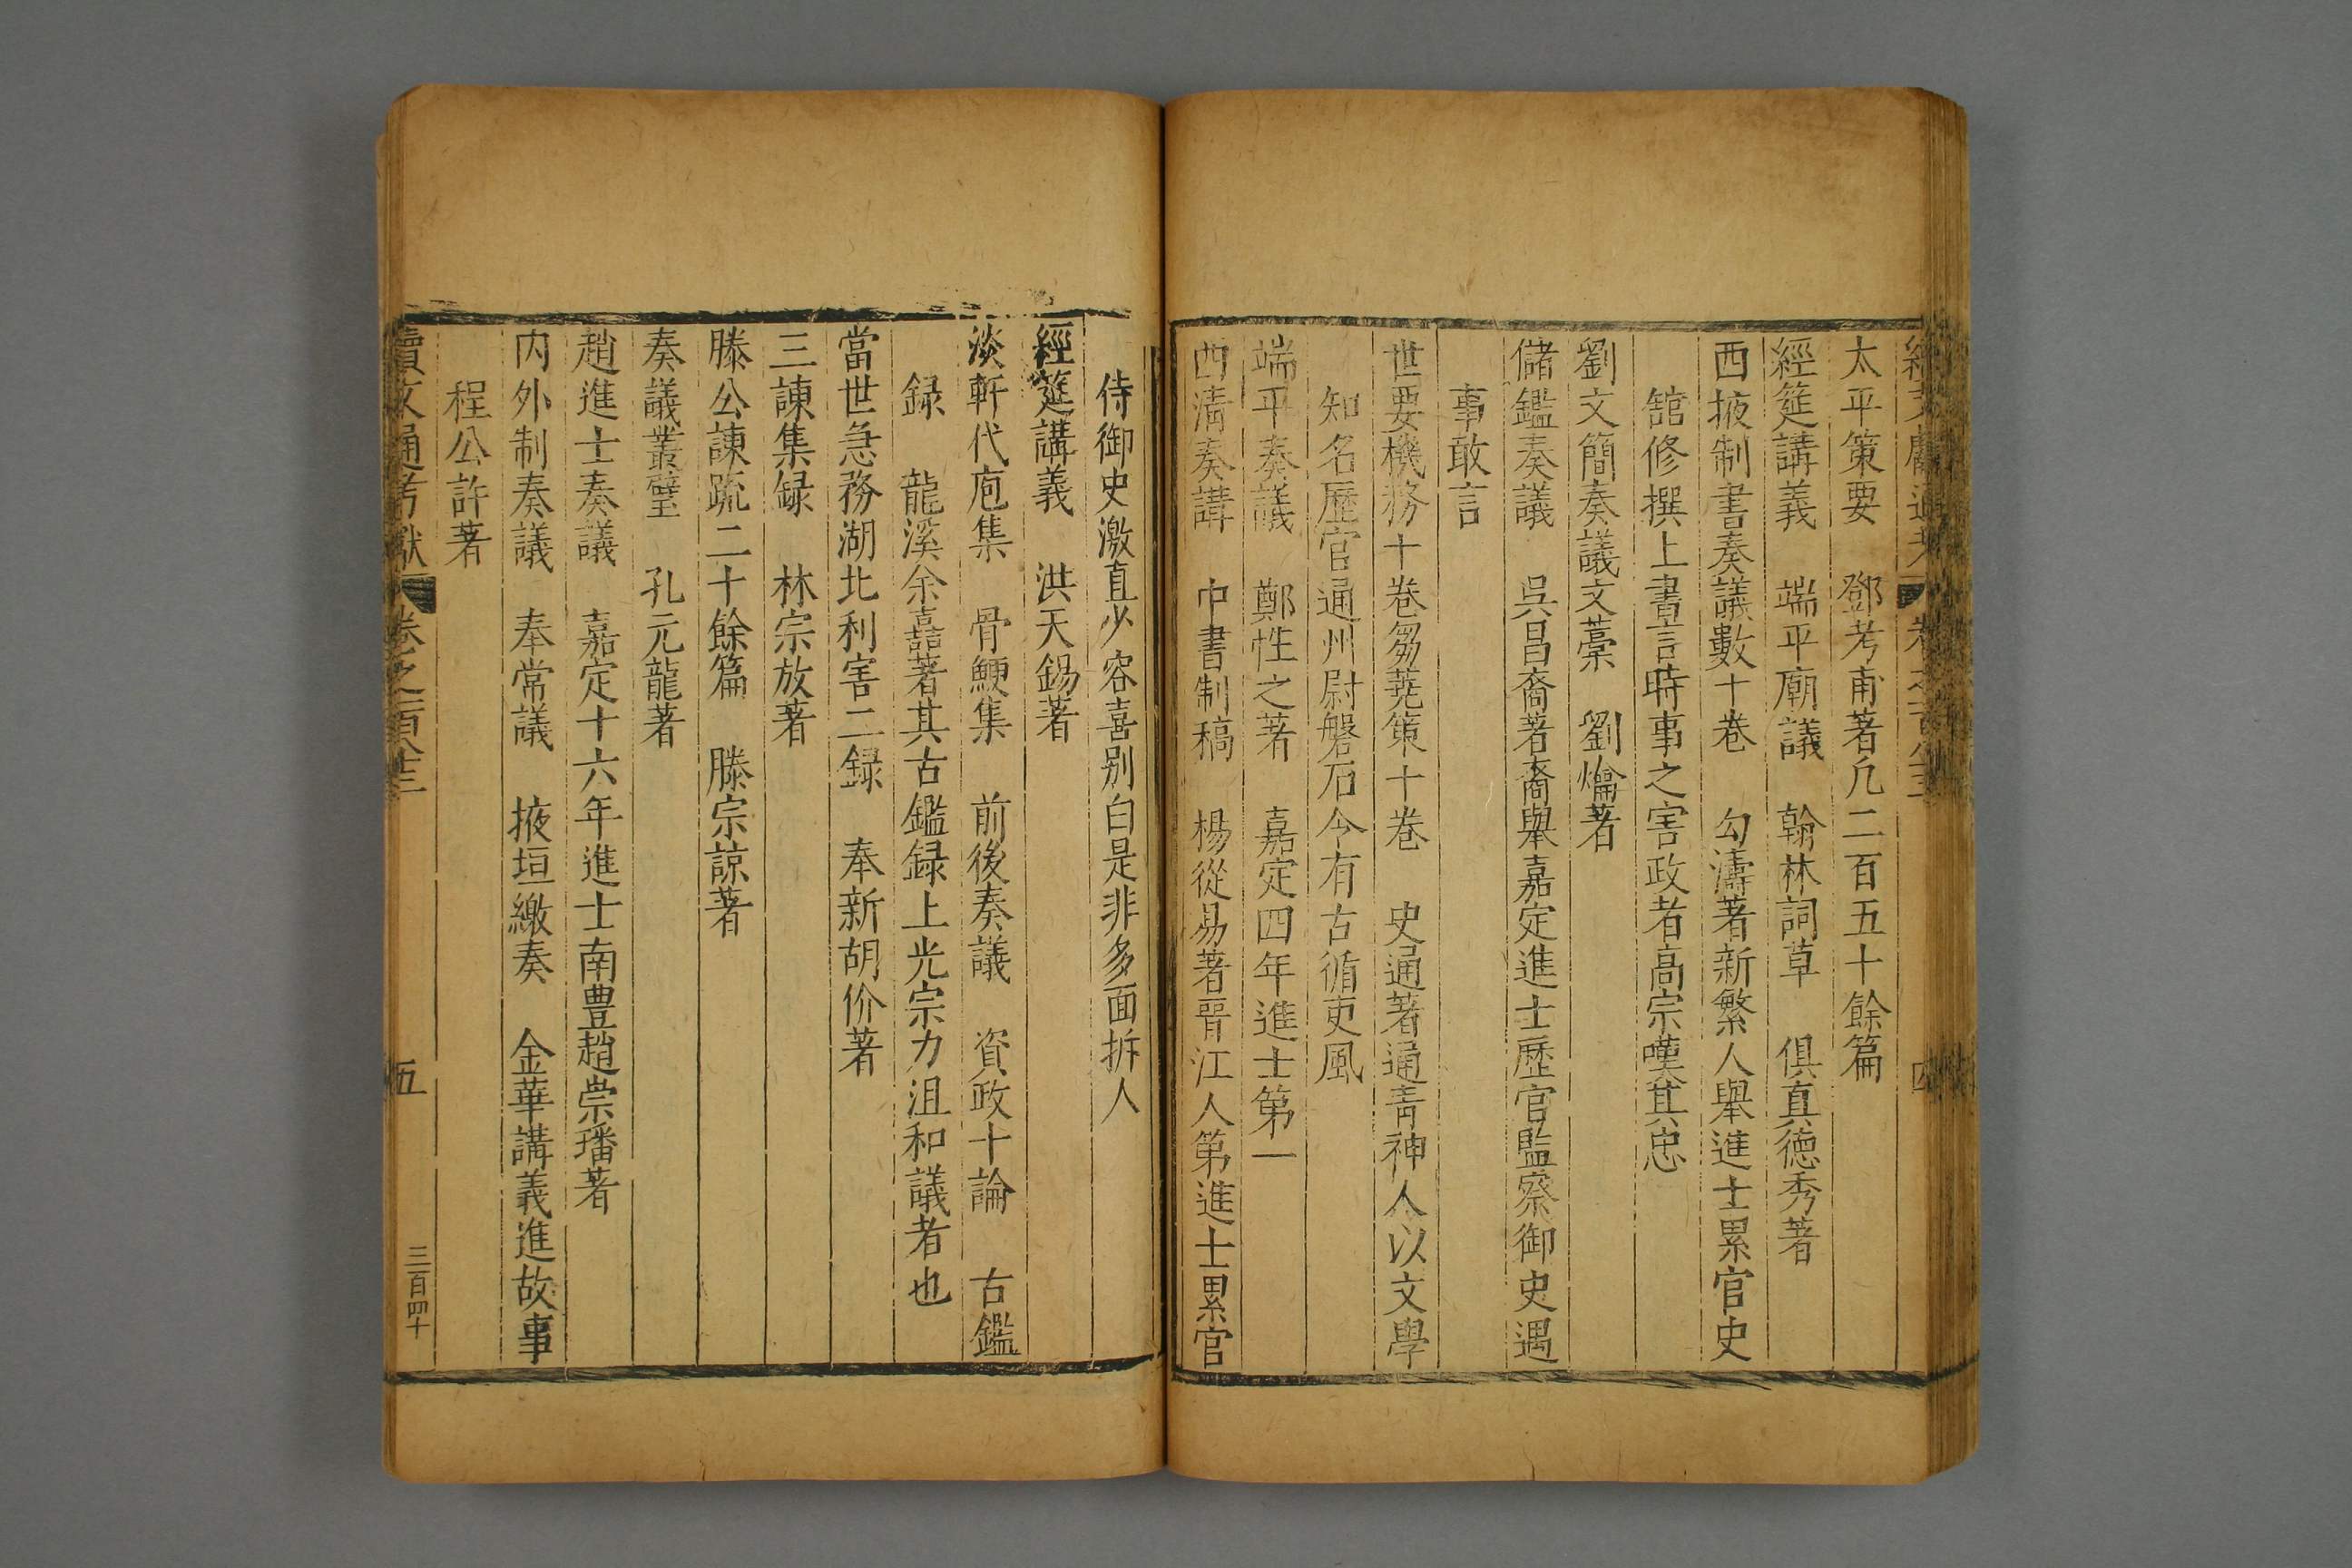 太平策要　鄧考甫著凢二百五十餘篇
經筵講義　端平廟議　翰林詞草　俱真德秀著
西掖制書奏議數十卷　勾濤著新繁人舉進士累官史
舘修撰上書言時事之害政者高宗嘆其忠
劉文簡奏議文藁　劉爚著
儲鑑奏議　吳昌裔著裔舉嘉定進士歷官監察御史遇
事敢言
世要機務十卷芻蕘策十卷　史通著通青神人以文學
知名歷官通州尉磐石今有古循吏風
端平奏議　鄭性之著　嘉定四年進士第一
西清奏講　中書制稿　楊從易著晉江人第進士累官
侍御史激直少容喜别白是非多面拆人
經筵講義　洪天錫著
淡軒代庖集　骨鯁集　前後奏議　資政十論　古鑑
録　龍溪余嚞著其古鑑録上光宗力沮和議者也
當世急務湖北利害二録　奉新胡价著
三諫集録　林宗放著
滕公諫疏二十餘篇　滕宗諒著
奏議叢璧　孔元龍著
趙進士奏議　嘉定十六年進士南豊趙崇璠著
内外制奏議　奉常議　掖垣繳奏　金華講義進故事
程公許著
續文通考獻　卷之一百八十三　五　三百四十